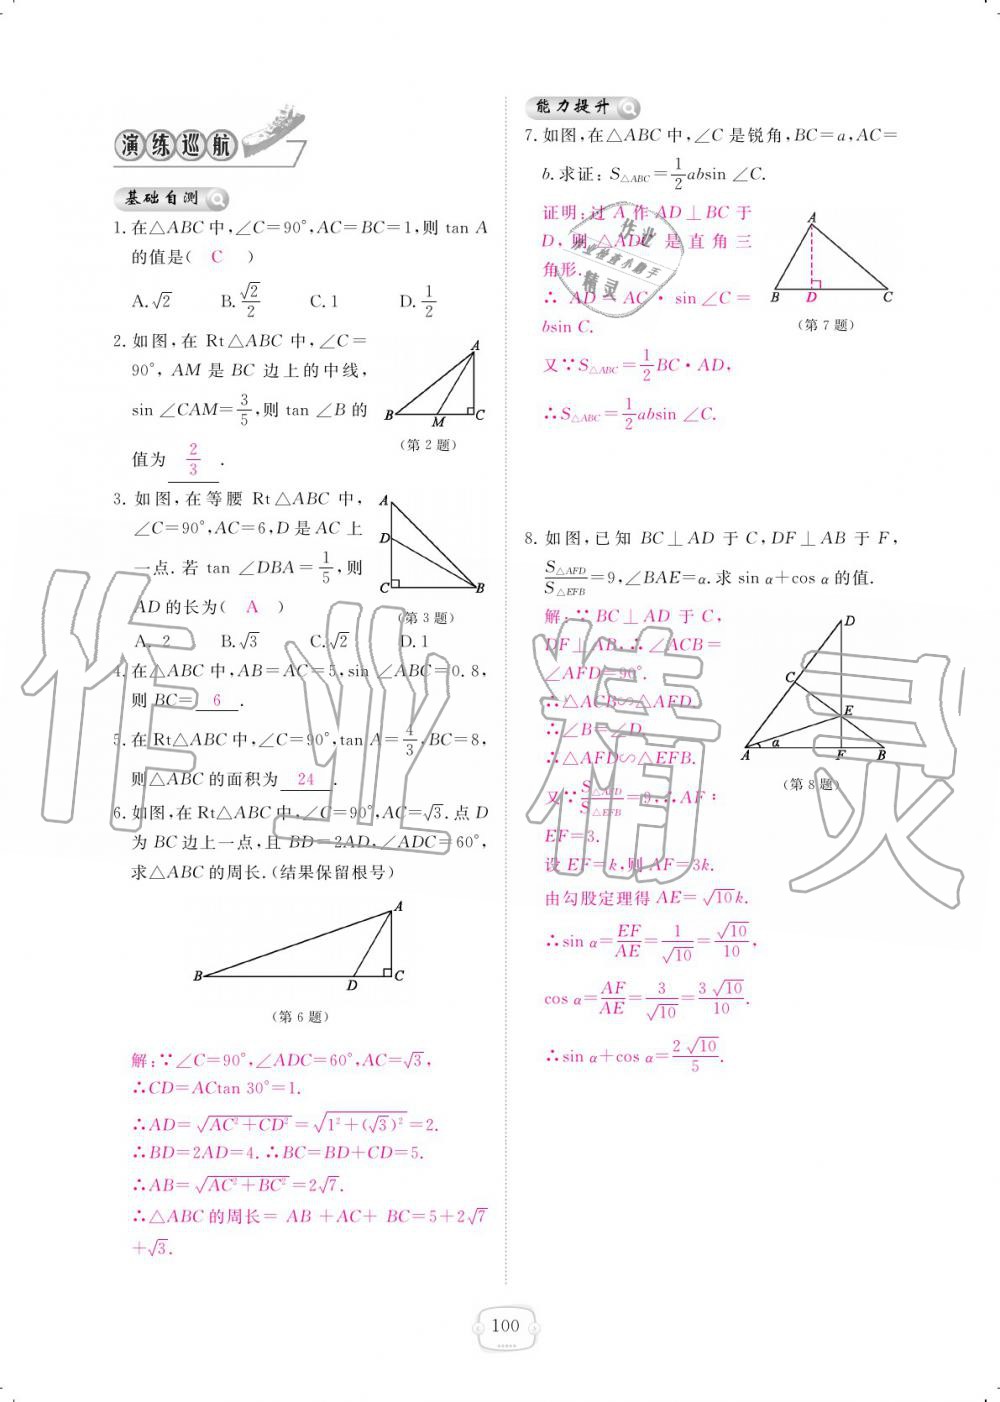 演练巡航
基础自测
1. 在△ABC中,∠C=90°,AC=BC=1,则 tan A
的值是( C )
A.√2 B.√2/2 C.1 D.1/2
2. 如图,在 Rt△ABC 中,∠C=
90°, AM 是 BC 边上的中线,
sin ∠CAM=3/5,则 tan ∠B 的
值为 2/3 .
A
B M C
(第2题)
3. 如图,在等腰 Rt△ABC 中,
∠C=90°,AC=6,D 是 AC 上
一点.若 tan ∠DBA=1/5,则
AD 的长为( A )
A. 2 B.√3 C.√2 D.1
A
D
C B
(第3题)
4. 在△ABC中,AB=AC=5,sin ∠ABC=0.8,
则 BC= 6 .
5. 在Rt△ABC中,∠C=90°,tan A=4/3,BC=8,
则△ABC的面积为 24 .
6. 如图,在Rt△ABC中,∠C=90°,AC=√3.点 D
为 BC 边上一点,且 BD=2AD,∠ADC=60°,
求△ABC的周长.(结果保留根号)
A
B D C
(第6题)
解:∵∠C=90°,∠ADC=60°,AC=√3,
∴CD=ACtan 30°=1.
∴AD=√(AC²+CD²)=√(1²+(√3)²)=2.
∴BD=2AD=4.∴BC=BD+CD=5.
∴AB=√(AC²+BC²)=2√7.
∴△ABC的周长= AB +AC+ BC=5+2√7
+√3.
能力提升
7. 如图,在△ABC中,∠C是锐角,BC=a,AC=
b.求证:S△ABC=1/2absin ∠C.
证明:过 A 作 AD⊥BC 于
D,则 △ADC 是直角三
角形.
∴ AD=AC·sin∠C=
bsin C.
又∵S△ABC=1/2BC·AD,
∴S△ABC=1/2absin ∠C.
A
B D C
(第7题)
8. 如图,已知 BC⊥AD 于 C,DF⊥AB 于 F,
S△AFD/S△EFB=9,∠BAE=α.求 sin α+cos α的值.
解:∵BC⊥AD 于 C,
DF⊥AB,∴∠ACB=
∠AFD=90°.
∴△ACB∽△AFD.
∴∠B=∠D.
∴△AFD∽△EFB.
又∵S△AFD/S△EFB=9,∴AF:
EF=3.
设 EF=k,则 AF=3k.
由勾股定理得 AE=√10k.
∴sin α=EF/AE=1/√10=√10/10,
cos α=AF/AE=3/√10=3√10/10.
∴sin α+cos α=2√10/5.
D
C
E
A α F B
(第8题)
作业精灵
100